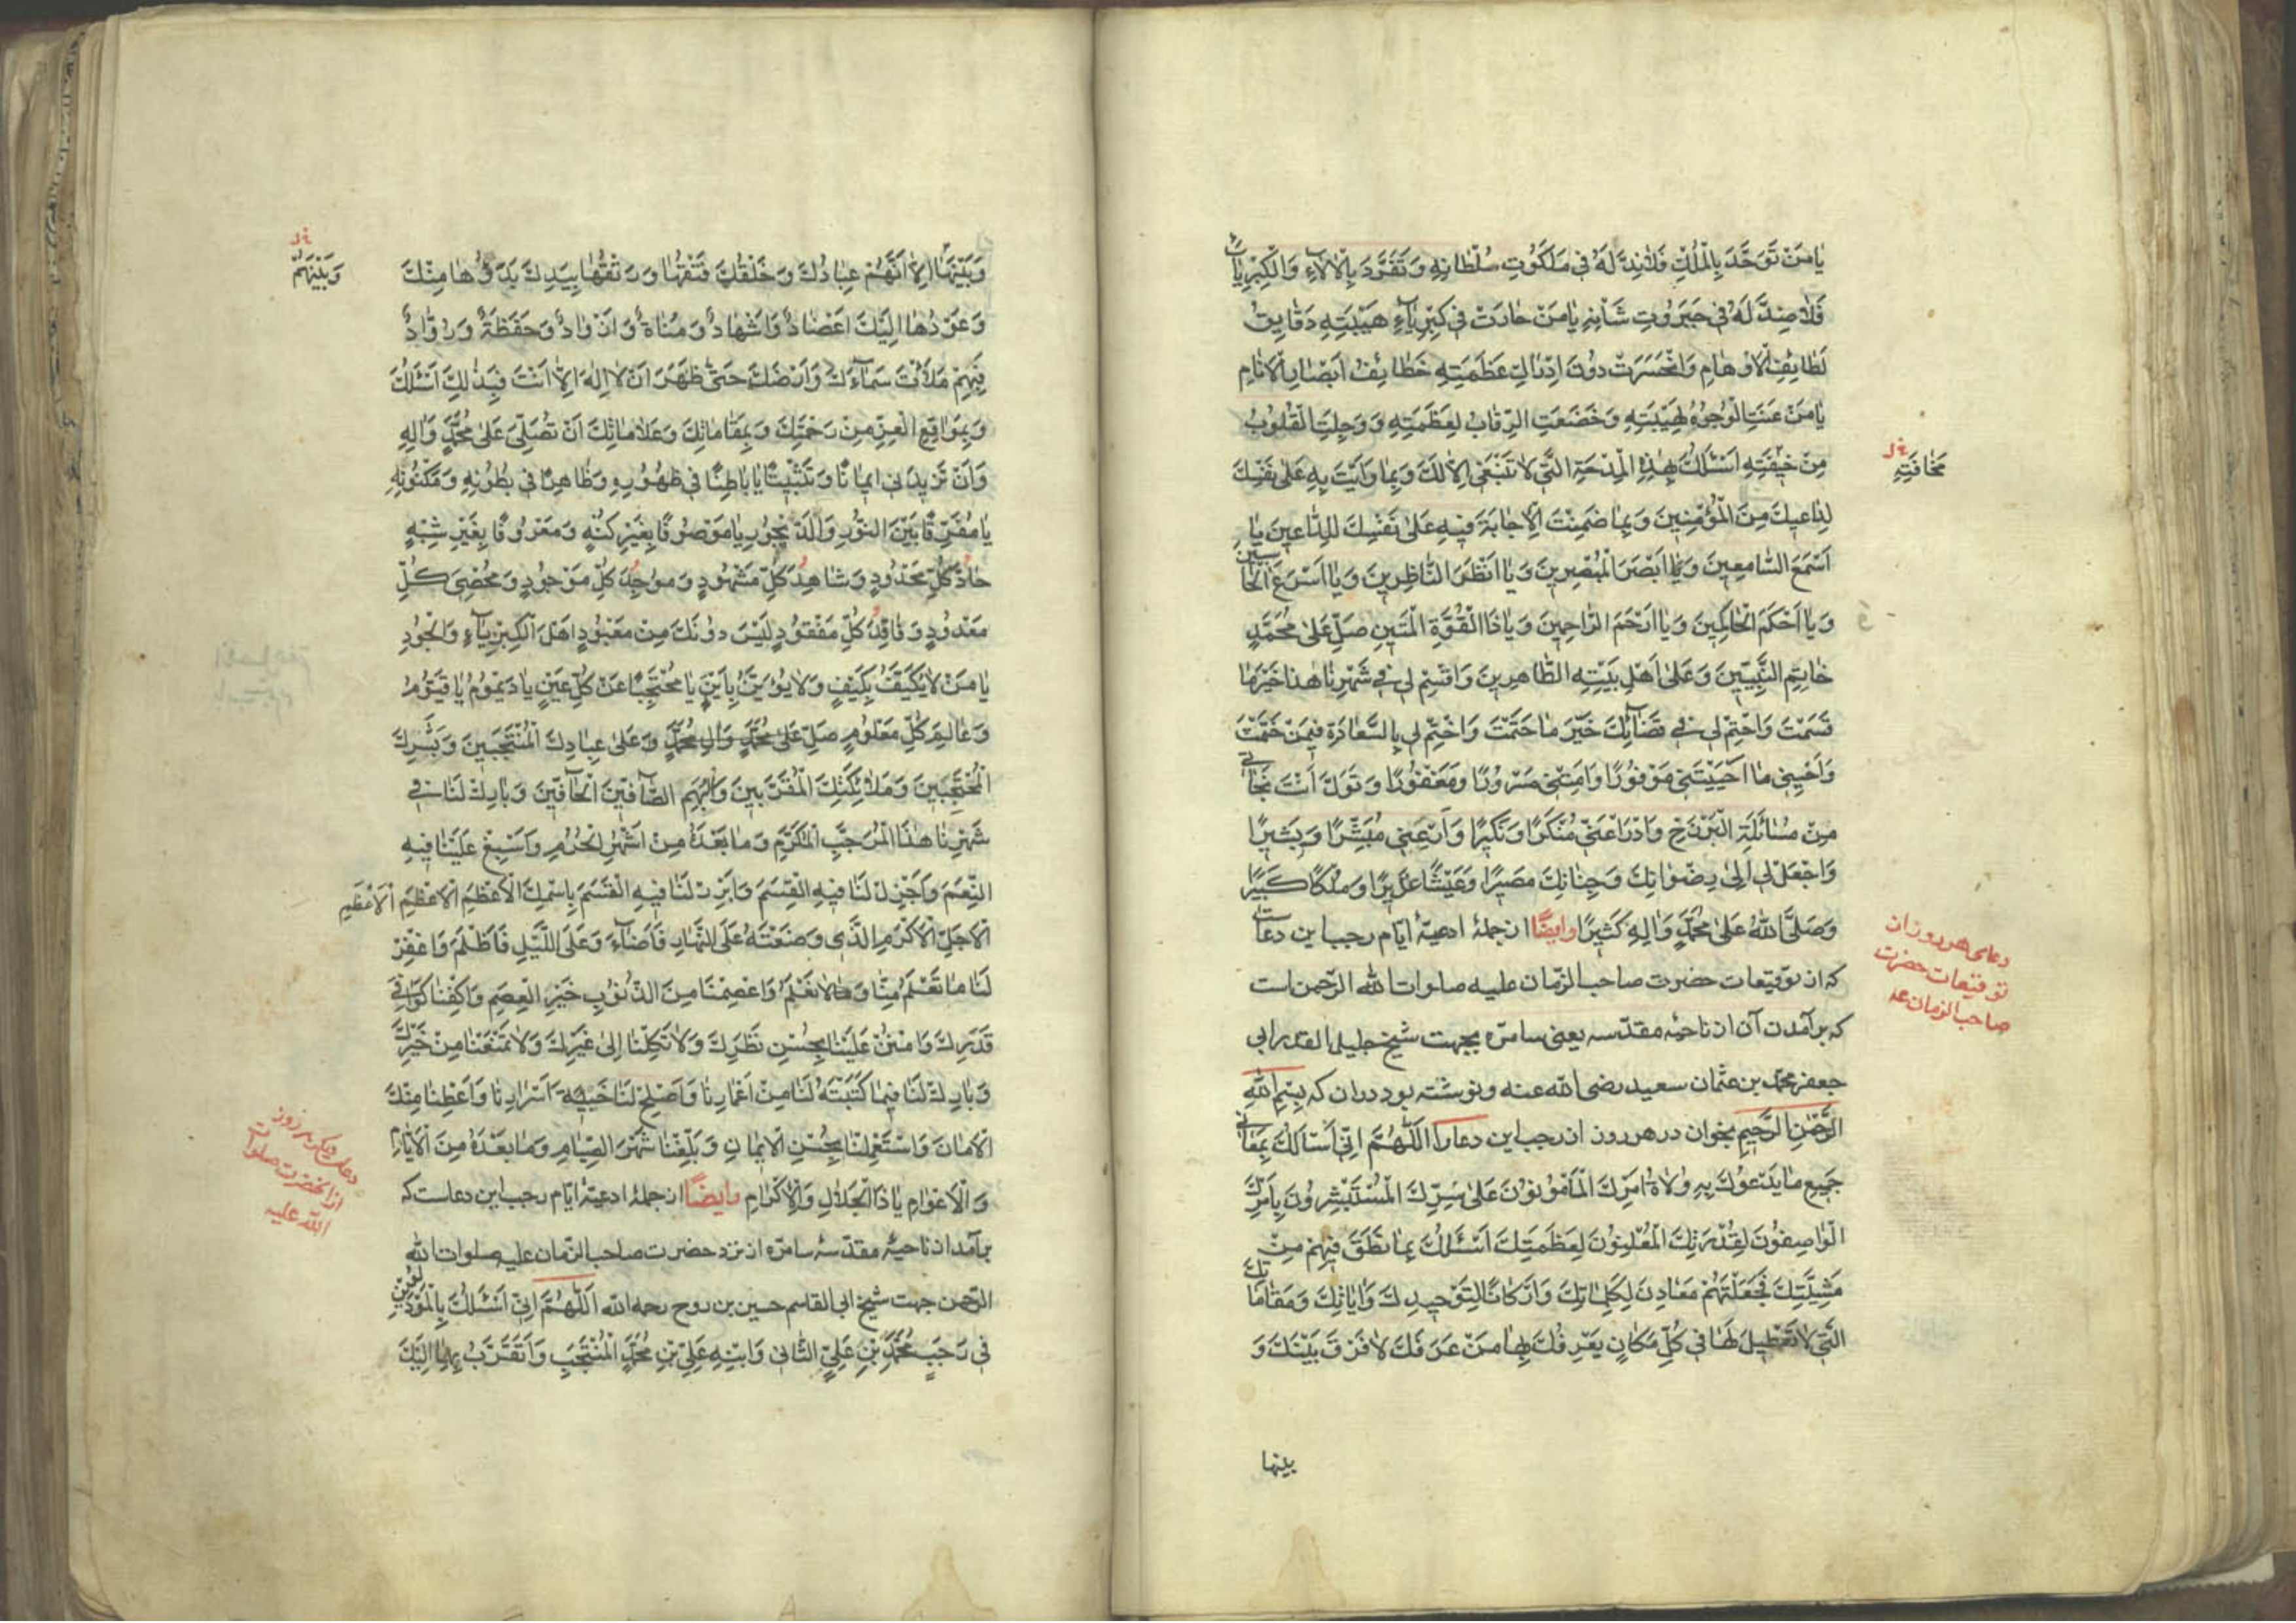 يا مَنْ تَوَحَّدَ بِالْمُلْكِ فَلا نِدَّ لَهُ في مَلَكُوتِ سُلْطانِهِ وَتَفَرَّدَ بِالْآلاءِ وَالْكِبْرِياءِ
فَلا ضِدَّ لَهُ في جَبَرُوتِ شَأْنِهِ يا مَنْ حارَتْ في كِبْرِياءِ هَيْبَتِهِ دَقايِقُ
لَطائِفِ الْاَوْهامِ وَانْحَسَرَتْ دوُنَ اِدْراكِ عَظَمَتِهِ خَطائِفُ اَبْصارِ الْاَنامِ
يا مَنْ عَنَتِ الْوُجُوهُ لِهَيْبَتِهِ وَخَضَعَتِ الرِّقابُ لِعَظَمَتِهِ وَوَجِلَتِ الْقُلُوبُ
مِنْ خيفَتِهِ اَسْئَلُكَ بِهٰذِهِ الْمِدْحَةِ الَّتي لا تَنْبَغي اِلّا لَكَ وَبِما وَاَيْتَ بِهِ عَلىٰ نَفْسِكَ
خ ل
مَخافَتِهِ
لِداعيكَ مِنَ الْمُؤْمِنينَ وَبِما ضَمِنْتَ الْاِجابَةَ فيهِ عَلىٰ نَفْسِكَ لِلدّاعينَ يا
اَسْمَعَ السّامِعينَ وَيا اَبْصَرَ الْمُبْصِرينَ وَيا اَنْظَرَ النّاظِرينَ وَيا اَسْرَعَ الْحاسِبينَ
وَيا اَحْكَمَ الْحاكِمينَ وَيا اَرْحَمَ الرّاحِمينَ وَيا ذَا الْقُوَّةِ الْمَتينِ صَلِّ عَلىٰ مُحَمَّدٍ
خاتِمِ النَّبِيّينَ وَعَلىٰ اَهْلِ بَيْتِهِ الطّاهِرينَ وَاقْسِمْ لي في شَهْرِنا هٰذا خَيْرَ ما
قَسَمْتَ وَاحْتِمْ لي في قَضائِكَ خَيْرَ ما حَتَمْتَ وَاخْتِمْ لي بِالسَّعادَةِ فيمَنْ خَتَمْتَ
وَاَحْيِني ما اَحْيَيْتَني مَوْفُورًا وَاَمِتْني مَسْرُورًا وَمَغْفُورًا وَتَوَلَّ اَنْتَ نَجاتي
مِنْ مُسائَلَةِ الْبَرْزَخِ وَادْرَأْ عَنّي مُنْكَرًا وَنَكيرًا وَاَرِ عَيْني مُبَشِّرًا وَبَشيرًا
وَاجْعَلْ لي اِلىٰ رِضْوانِكَ وَجِنانِكَ مَصيرًا وَعَيْشًا قَريرًا وَمُلْكًا كَبيرًا
وَصَلَّى اللهُ عَلىٰ مُحَمَّدٍ وَآلِهِ كَثيرًا وايضًا از جملهٔ ادعيهٔ ايّام رجب اين دعاست
كه از توقيعات حضرت صاحب الزّمان عليه صلوات الله الرّحمن است
دعاى هر روز از
توقيعات حضرت
صاحب الزمان عه
كه برآمدن آن از ناحيهٔ مقدّسه يعنى سامرّه بجهت شيخ جليل القدر ابى
جعفر محمّد بن عثمان سعيد رضى الله عنه و نوشته بود در آن كه بِسْمِ اللهِ
الرَّحْمٰنِ الرَّحيمِ بخوان در هر روز از رجب اين دعا را اَللّٰهُمَّ اِنّي اَسْاَلُكَ بِمَعاني
جَميعِ ما يَدْعُوكَ بِهِ وُلاةُ اَمْرِكَ الْمَأْمُونُونَ عَلىٰ سِرِّكَ الْمُسْتَبْشِرُونَ بِاَمْرِكَ
الْواصِفُونَ لِقُدْرَتِكَ الْمُعْلِنُونَ لِعَظَمَتِكَ اَسْئَلُكَ بِما نَطَقَ فيهِمْ مِنْ
مَشِيَّتِكَ فَجَعَلْتَهُمْ مَعادِنَ لِكَلِماتِكَ وَاَرْكانًا لِتَوْحيدِكَ وَآياتِكَ وَمَقاماتِكَ
الَّتي لا تَعْطيلَ لَها في كُلِّ مَكانٍ يَعْرِفُكَ بِها مَنْ عَرَفَكَ لا فَرْقَ بَيْنَكَ وَ
بينها
وَبَيْنَها اِلّا اَنَّهُمْ عِبادُكَ وَخَلْقُكَ فَتْقُها وَرَتْقُها بِيَدِكَ بَدْؤُها مِنْكَ
خ ل
وَبَيْنَهُمْ
وَعَوْدُها اِلَيْكَ اَعْضادٌ وَاَشْهادٌ وَمُناةٌ وَاَذْوادٌ وَحَفَظَةٌ وَرُوّادٌ
فَبِهِمْ مَلَأْتَ سَماءَكَ وَاَرْضَكَ حَتّىٰ ظَهَرَ اَنْ لا اِلٰهَ اِلّا اَنْتَ فَبِذٰلِكَ اَسْئَلُكَ
وَبِمَواقِعِ الْعِزِّ مِنْ رَحْمَتِكَ وَبِمَقاماتِكَ وَعَلاماتِكَ اَنْ تُصَلِّيَ عَلىٰ مُحَمَّدٍ وَآلِهِ
وَاَنْ تَزيدَني ايمانًا وَتَثْبيتًا يا باطِنًا في ظُهُورِهِ وَظاهِرًا في بُطُونِهِ وَمَكْنُونِهِ
يا مُفَرِّقًا بَيْنَ النُّورِ وَالدَّيْجُورِ يا مَوْصُوفًا بِغَيْرِ كُنْهٍ وَمَعْرُوفًا بِغَيْرِ شِبْهٍ
حادَّ كُلِّ مَحْدُودٍ وَشاهِدَ كُلِّ مَشْهُودٍ وَمُوجِدَ كُلِّ مَوْجُودٍ وَمُحْصِيَ كُلِّ
مَعْدُودٍ وَفاقِدَ كُلِّ مَفْقُودٍ لَيْسَ دوُنَكَ مِنْ مَعْبُودٍ اَهْلَ الْكِبْرِياءِ وَالْجُودِ
يا مَنْ لا يُكَيَّفُ بِكَيْفٍ وَلا يُؤَيَّنُ بِاَيْنٍ يا مُحْتَجِبًا عَنْ كُلِّ عَيْنٍ يا دَيْمُومُ يا قَيُّومُ
وَعالِمَ كُلِّ مَعْلُومٍ صَلِّ عَلىٰ مُحَمَّدٍ وَآلِ مُحَمَّدٍ وَعَلىٰ عِبادِكَ الْمُنْتَجَبينَ وَبَشَرِكَ
الْمُحْتَجِبينَ وَمَلائِكَتِكَ الْمُقَرَّبينَ وَالْبُهَمِ الصّافّينَ الْحافّينَ وَبارِكْ لَنا في
شَهْرِنا هٰذَا الْمُرَجَّبِ الْمُكَرَّمِ وَما بَعْدَهُ مِنْ اَشْهُرِ الْحُرُمِ وَاَسْبِغْ عَلَيْنا فيهِ
النِّعَمَ وَاَجْزِلْ لَنا فيهِ الْقِسَمَ وَاَبْرِرْ لَنا فيهِ الْقَسَمَ بِاسْمِكَ الْاَعْظَمِ الْاَعْظَمِ الْاَعْظَمِ
الْاَجَلِّ الْاَكْرَمِ الَّذي وَضَعْتَهُ عَلَى النَّهارِ فَاَضاءَ وَعَلَى اللَّيْلِ فَاَظْلَمَ وَاغْفِرْ
لَنا ما تَعْلَمُ مِنّا وَما لا نَعْلَمُ وَاعْصِمْنا مِنَ الذُّنُوبِ خَيْرَ الْعِصَمِ وَاكْفِنا كَوافِيَ
قَدَرِكَ وَامْنُنْ عَلَيْنا بِحُسْنِ نَظَرِكَ وَلا تَكِلْنا اِلىٰ غَيْرِكَ وَلا تَمْنَعْنا مِنْ خَيْرِكَ
وَبارِكْ لَنا فيما كَتَبْتَهُ لَنا مِنْ اَعْمارِنا وَاَصْلِحْ لَنا خَبيئَةَ اَسْرارِنا وَاَعْطِنا مِنْكَ
الْاَمانَ وَاسْتَعْمِلْنا بِحُسْنِ الْايمانِ وَبَلِّغْنا شَهْرَ الصِّيامِ وَما بَعْدَهُ مِنَ الْاَيّامِ
وَالْاَعْوامِ يا ذَا الْجَلالِ وَالْاِكْرامِ وايضًا از جملهٔ ادعيهٔ ايّام رجب اين دعاست كه
دعاى ديگر هر روز
از انحضرت صلوات
الله عليه
برآمد از ناحيهٔ مقدّسهٔ سامرّه از نزد حضرت صاحب الزّمان عليه صلوات الله
الرّحمن جهت شيخ ابى القاسم حسين بن روح رحمه الله اَللّٰهُمَّ اِنّي اَسْئَلُكَ بِالْمَوْلُودَيْنِ
في رَجَبٍ مُحَمَّدِ بْنِ عَلِيٍّ الثّاني وَابْنِهِ عَلِيِّ بْنِ مُحَمَّدٍ الْمُنْتَجَبِ وَاَتَقَرَّبُ بِهِما اِلَيْكَ